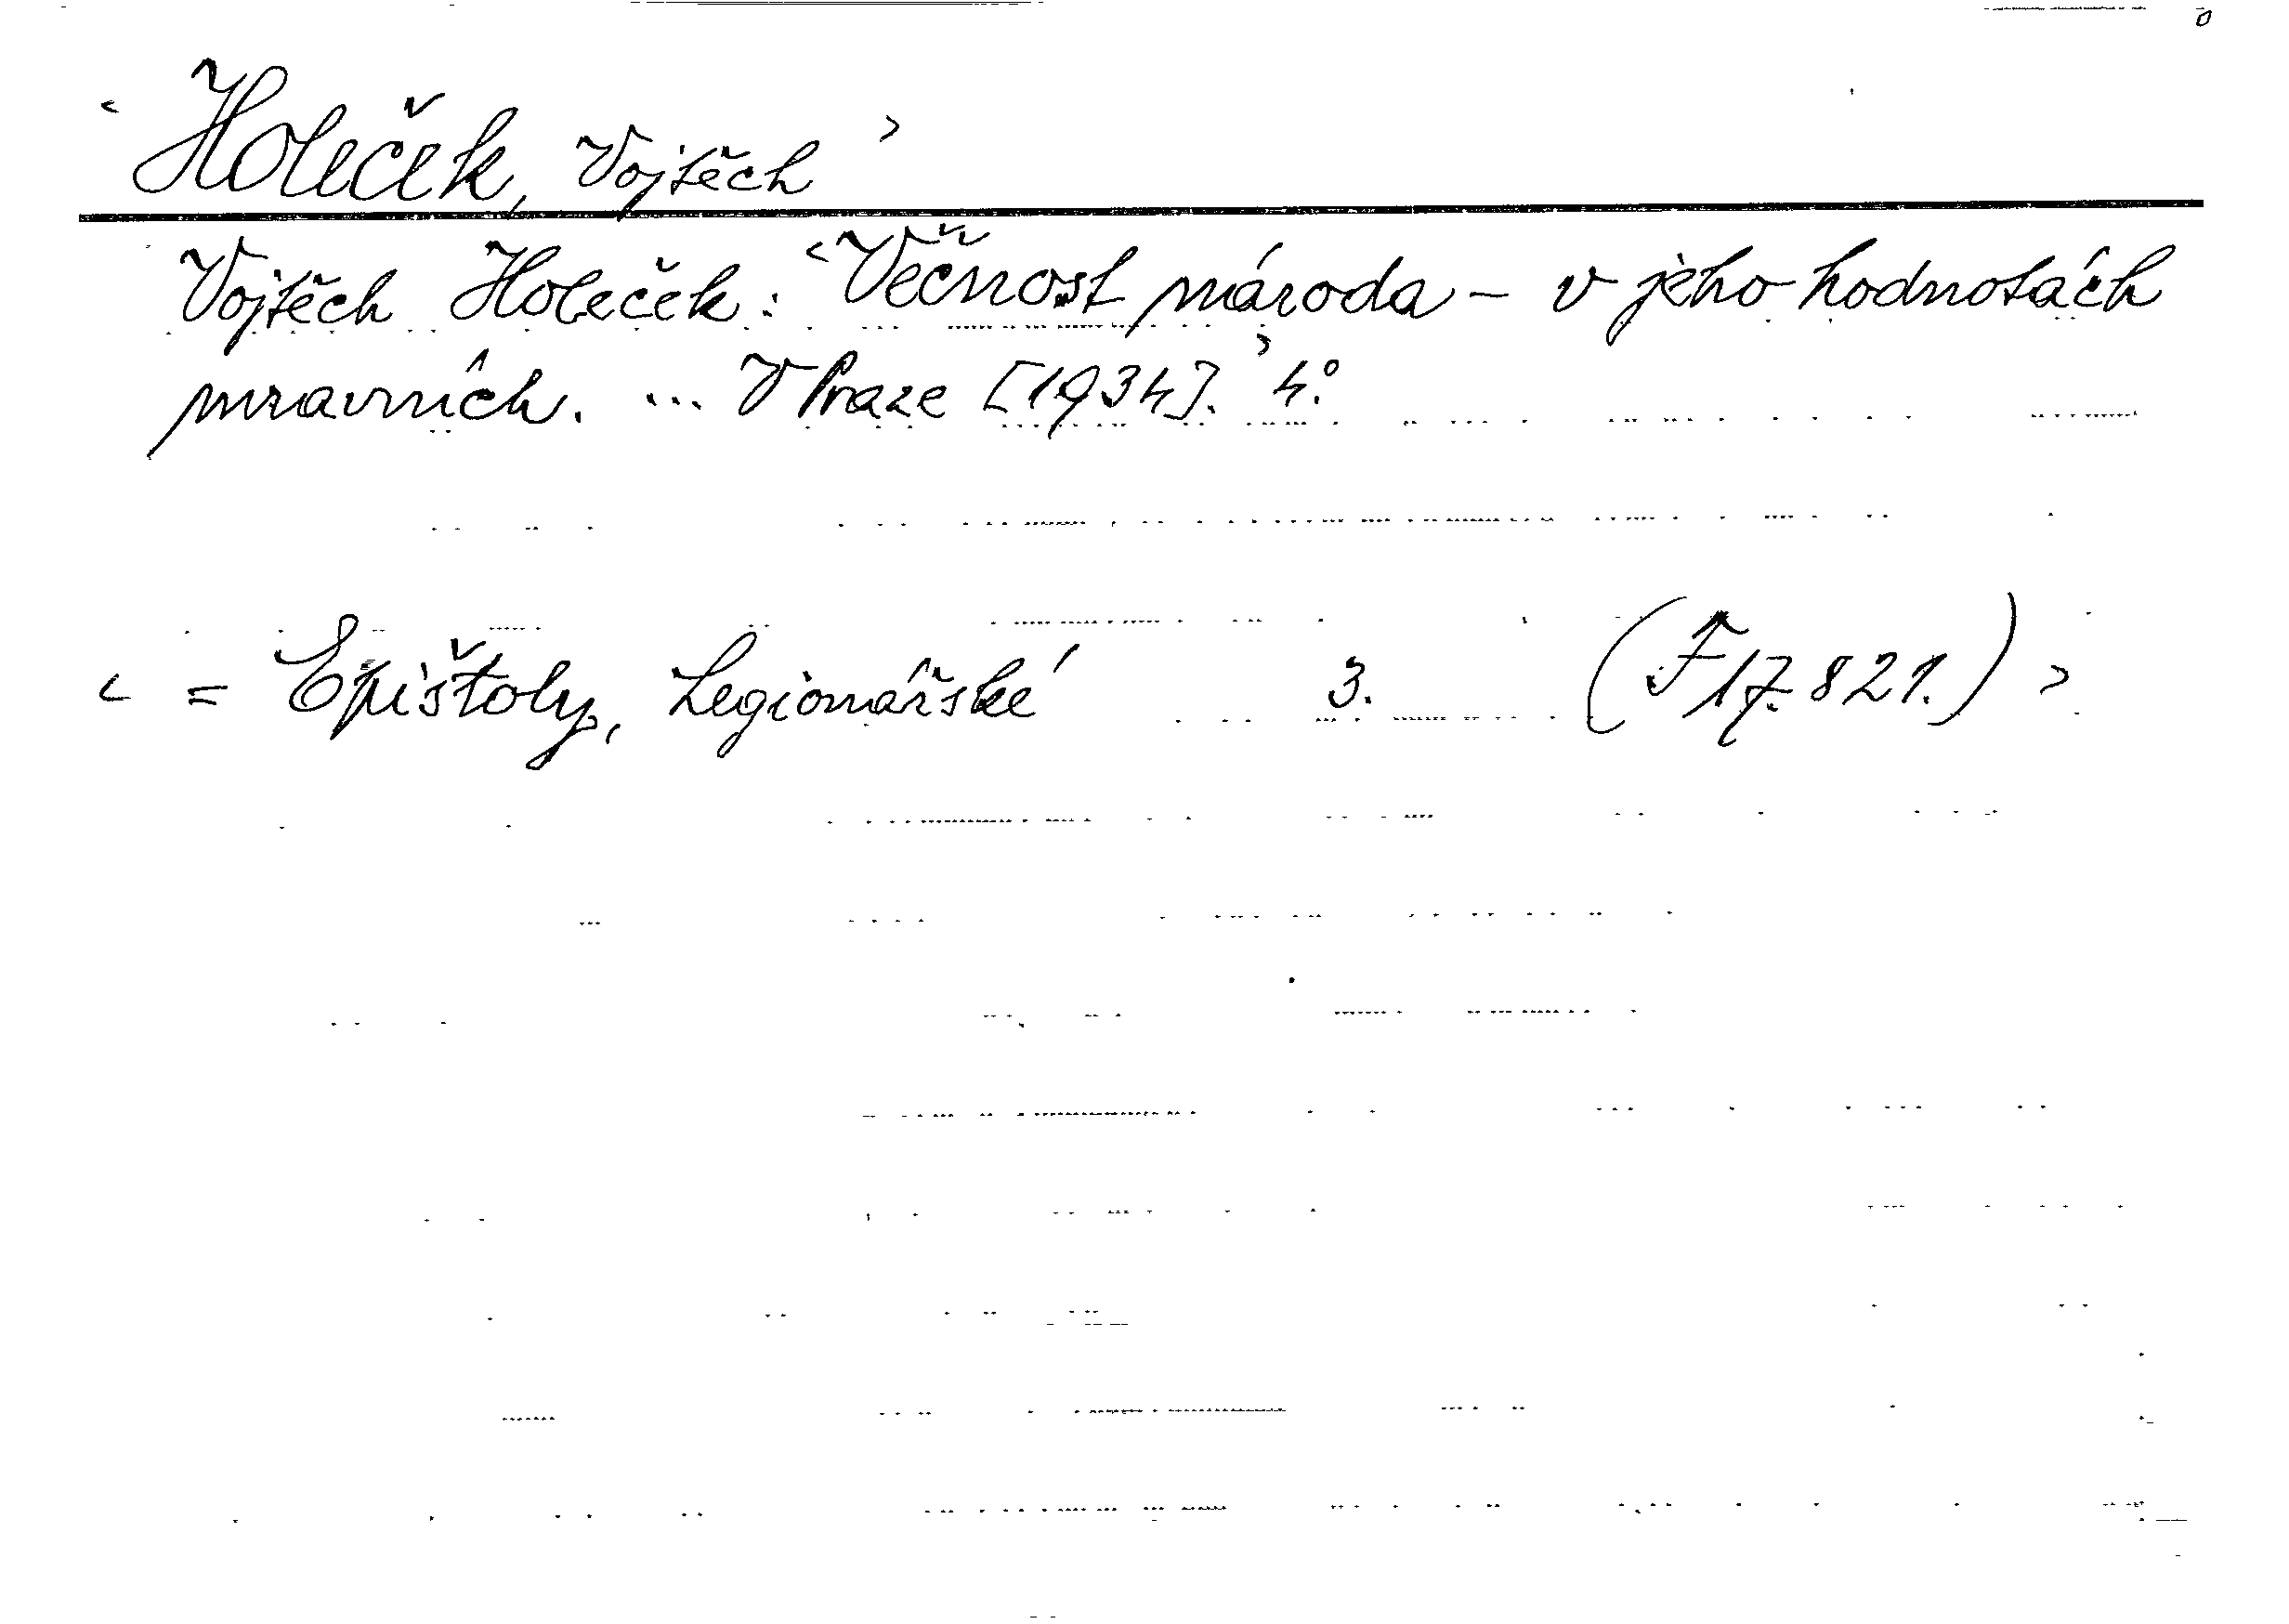 ‹ Holeček, Vojtěch ›
Vojtěch Holeček: ‹ Věčnost národa – v jeho hodnotách
mravních. ... V Praze [1934]. › 4°.
‹ = Epištoly, Legionářské 3. (F 17.821.) ›